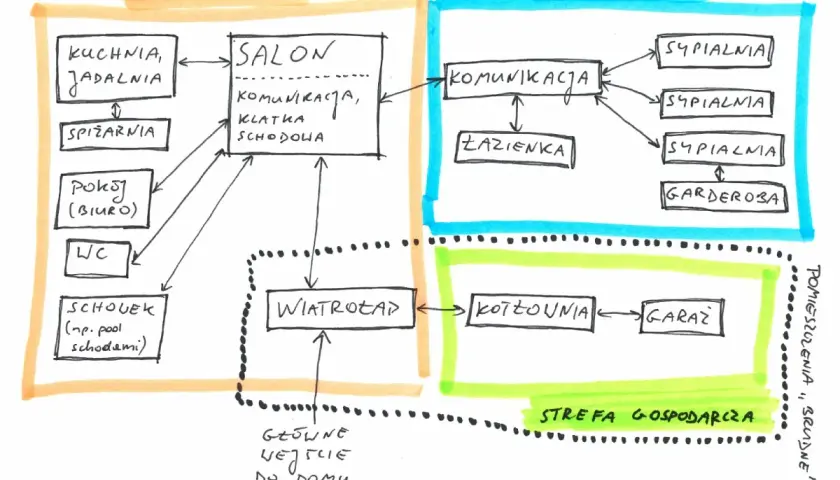 KUCHNIA,
JADALNIA
SPIŻARNIA
SALON
KOMUNIKACJA,
KLATKA
SCHODOWA
POKÓJ
(BIURO)
WC
SCHOWEK
(np. pod
schodami)
WIATROŁAP
GŁÓWNE
WEJŚCIE
DO DOMU
KOMUNIKACJA
ŁAZIENKA
SYPIALNIA
SYPIALNIA
SYPIALNIA
GARDEROBA
KOTŁOWNIA
GARAŻ
STREFA GOSPODARCZA
POMIESZCZENIA „BRUDNE”